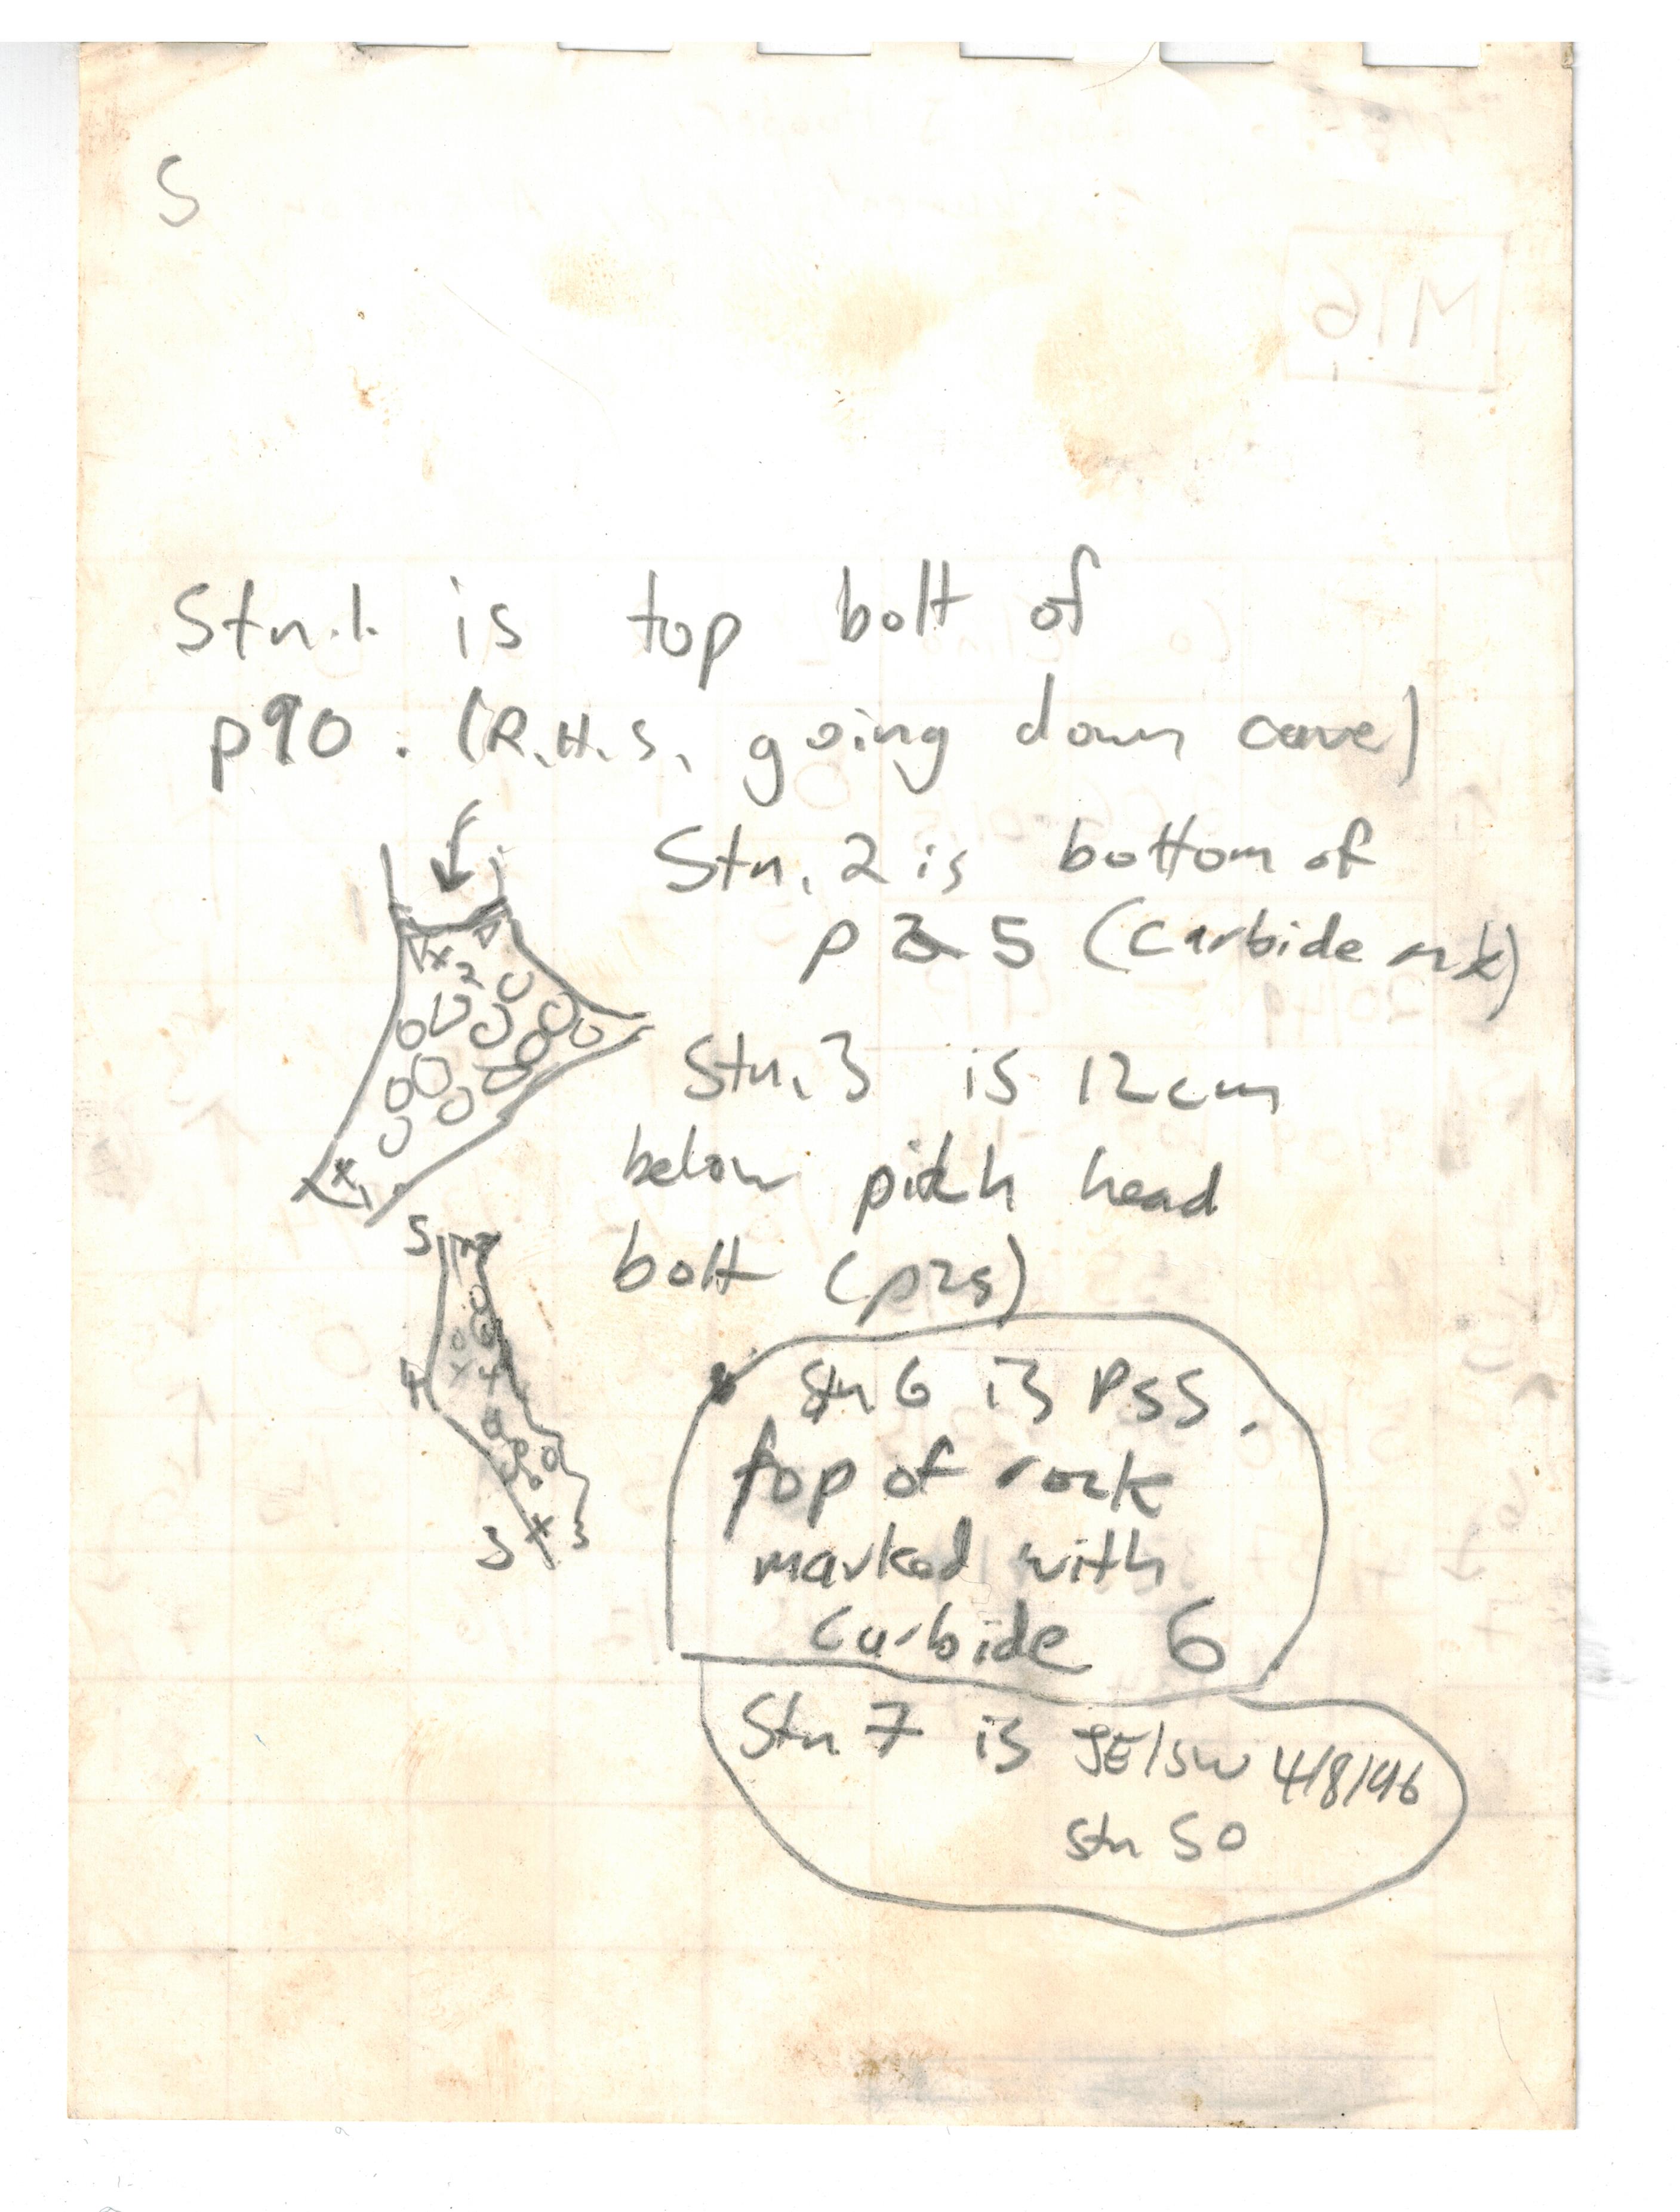 S
Stn.1. is top bolt of
p90. (R.H.S. going down cave)
Stn. 2 is bottom of
p 25 (carbide mk)
x 2
Stn. 3 is 12cm
below pitch head
bolt (p25)
x 1
5
4
3 x 3
Stn 6 is PSS.
top of rock
marked with
carbide 6
Stn 7 is JE/SW 4/8/96
Stn 50